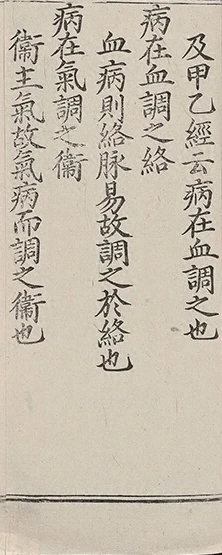 及甲乙經云病在血調之也
病在血調之絡
血病則絡脉易故調之於絡也
病在氣調之衞
衞主氣故氣病而調之衞也